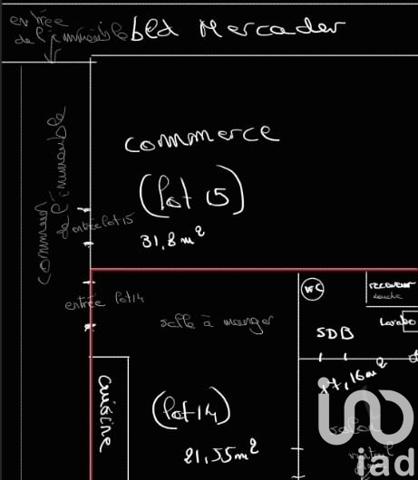 entrée
de l'immeuble
bld Mercader
commun de l'immeuble
commerce
(lot 15)
31,8 m²
entrée lot 15
entrée lot 14
salle à manger
WC
receveur
douche
Lavabo
SDB
17,16 m²
cuisine
(lot 14)
21,55 m²
salon
iad